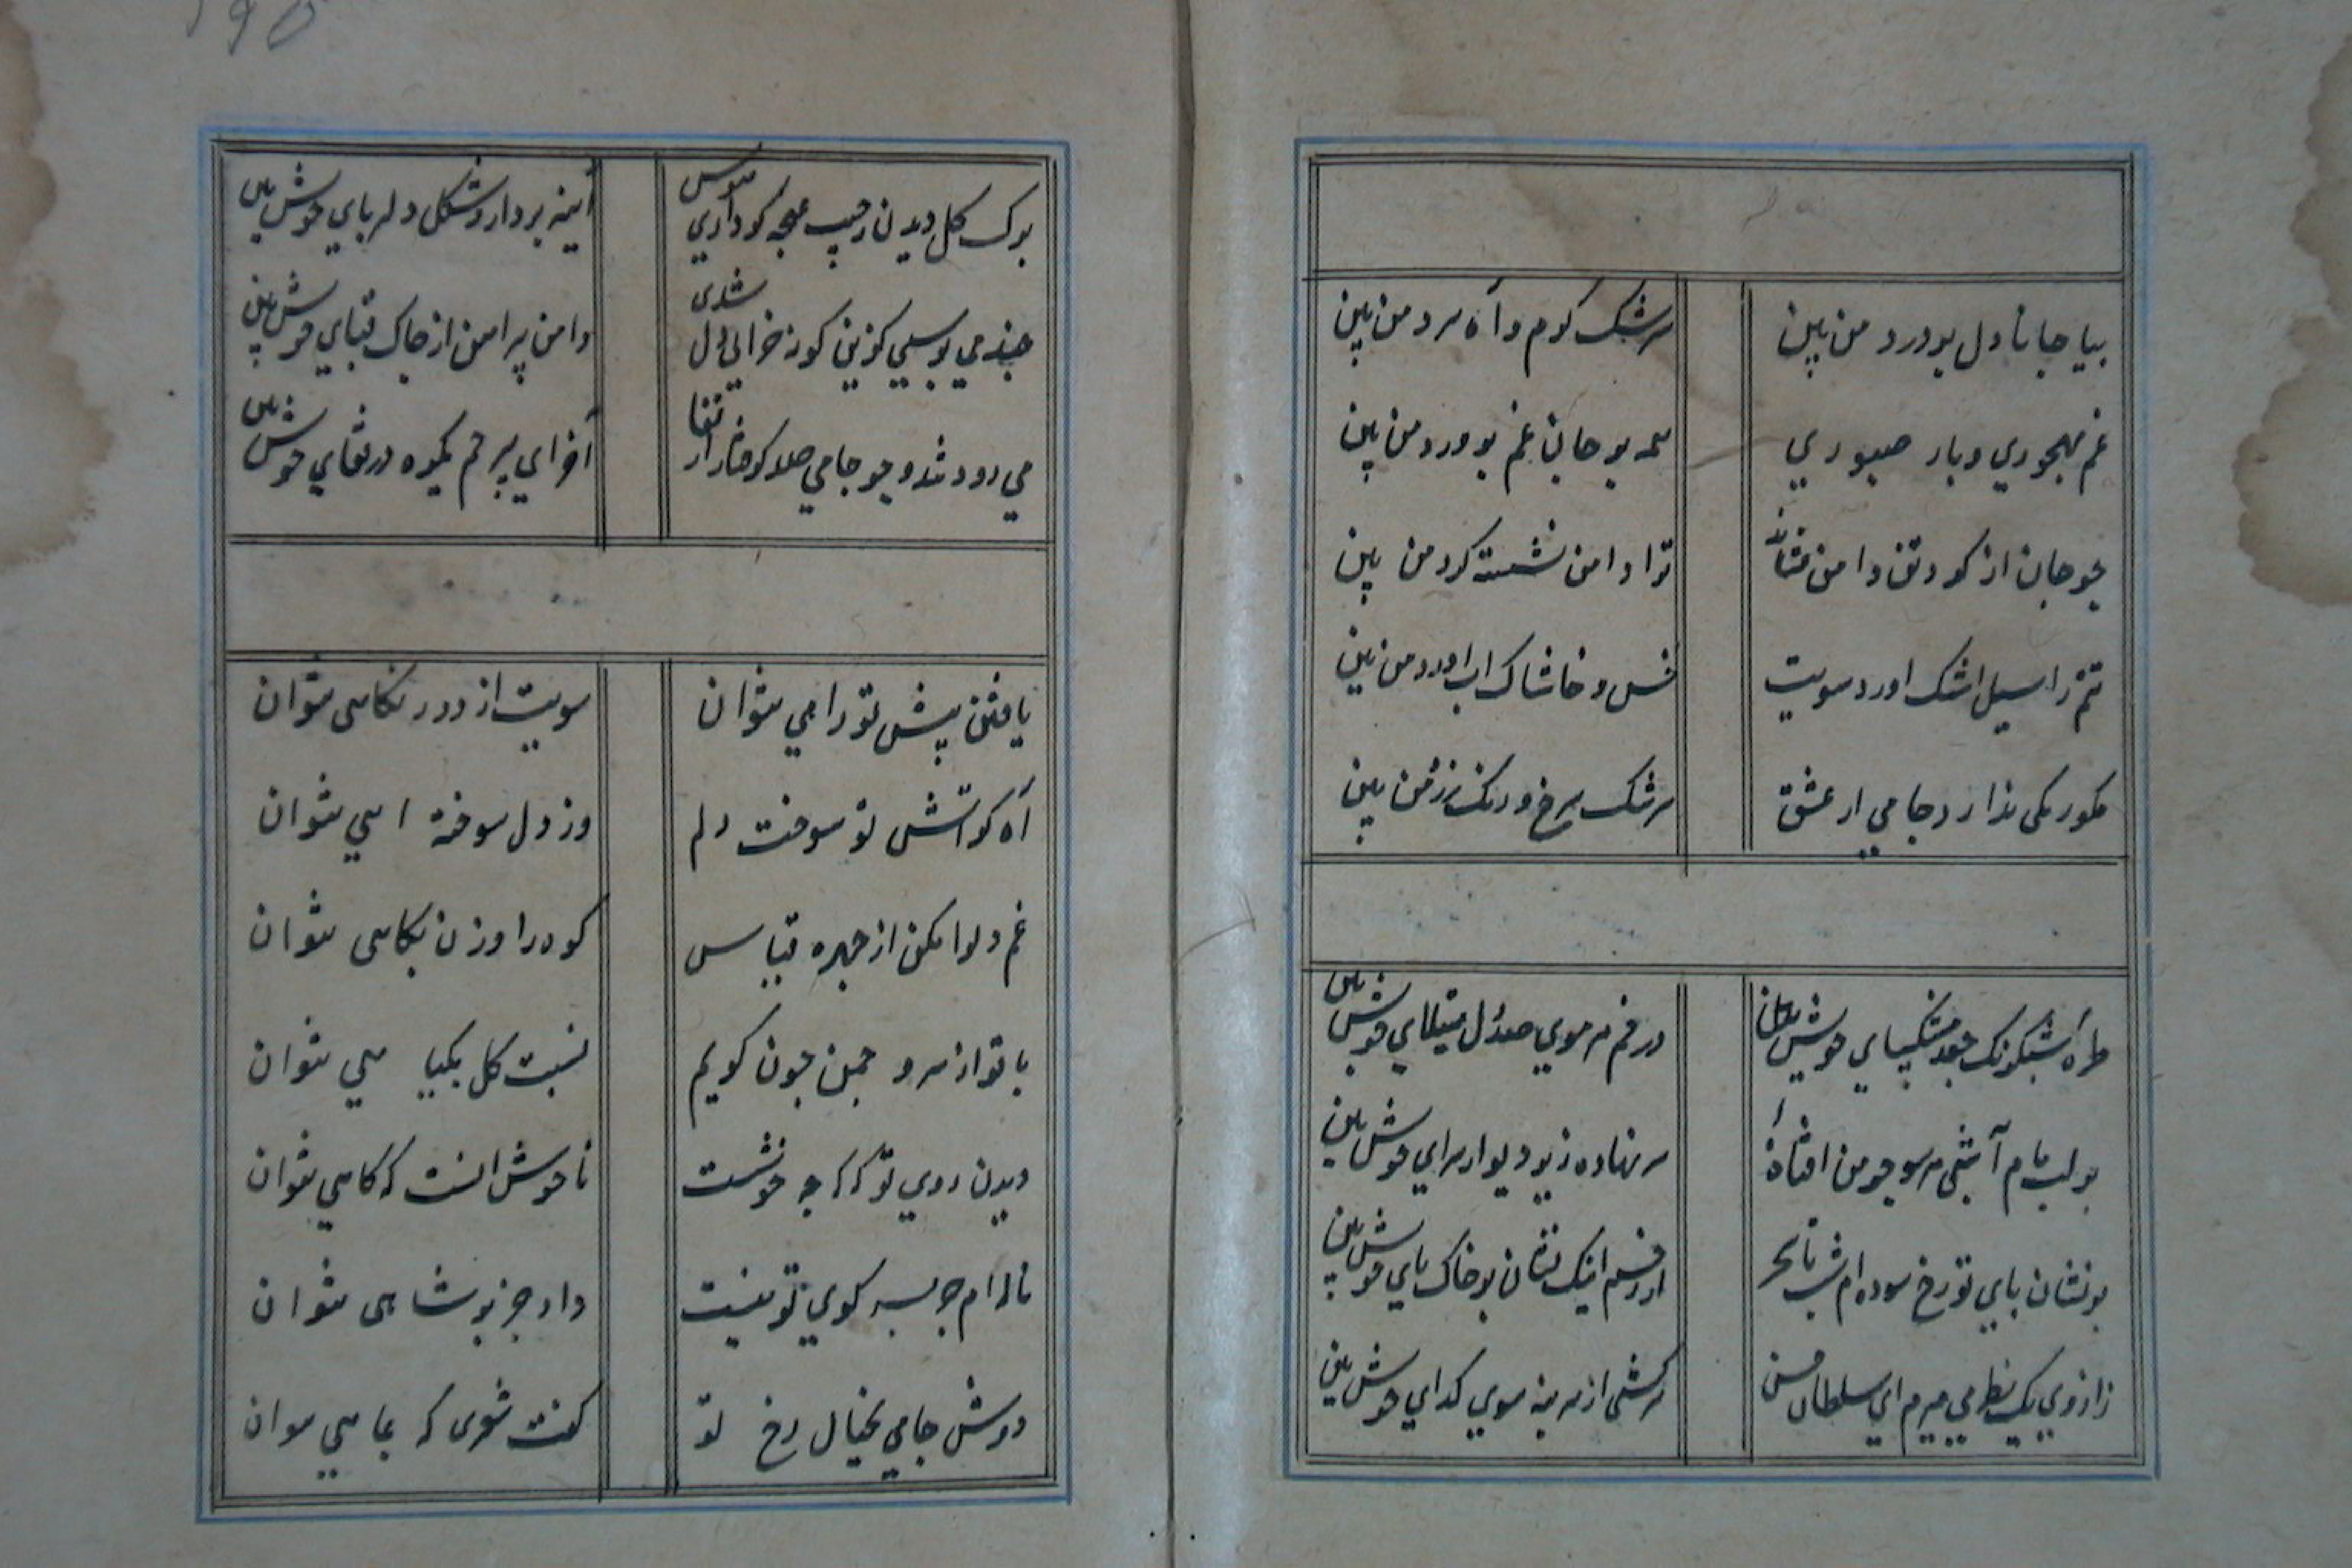 بیا جانا دل پر درد من بین
سرشک کرم و آه سرد من بین
غم مهجوری و بار صبوری
همه بر جان غم پرورد من بین
چو جان از کرد تن دامن فشانده
ترا دامن نشسته کرد من بین
تنم را سیل اشک اورد سویت
خس و خاشاک اب اورد من بین
سرشک سرخ و رنک زرد من بین
جامی از عشق
طره شبرنک جعد مشکسای خویش بین
در خم هر موی صد دل مبتلای خویش بین
بر لب بام آ شبی هر سو چو من افتاده
سر نهاده زیر دیوار سرای خویش بین
بر نشان پای تو رخ سوده ام شب تا سحر
از رخم اینک نشان بر خاک پای خویش بین
ارزوی یک نظر می میرم ای سلطان حسن
سرکشی از سر بنه سوی کدای خویش بین
برک کل دیدن ز جیب غنچه کر داری هوس
آینه بردار و شکل دلربای خویش بین
دامن پیراهن از چاک قبای خویش بین
می رود تند و چو جامی صد کرفتار از قفا
آخر ای بیرحم یکره در قفای خویش بین
یافتن پیش تو راهی نتوان
سویت از دور نکاهی نتوان
آه کز آتش تو سوخت دلم
وز دل سوخته اهی نتوان
غم دلرا مکن از چهره قیاس
کوه را وزن بکاهی نتوان
با تو از سرو چمن چون کویم
نسبت کل بکیاهی نتوان
دیدن روی تو که که چه خوشست
ناخوش انست که کاهی نتوان
ناله ام جز بسر کوی تو نیست
داد جز بر شاهی نتوان
دوش جامی بخیال رخ تو
کفت شعری که بماهی نتوان